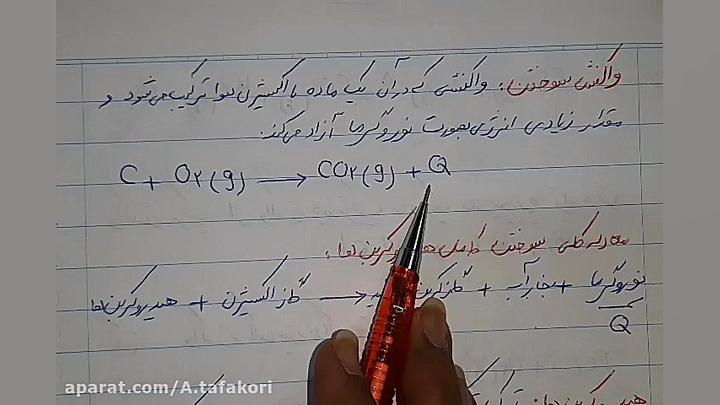 واکنش سوختن: واکنشی که در آن یک ماده با اکسیژن هوا ترکیب می‌شود و
مقدار زیادی انرژی بصورت نور و گرما آزاد می‌کند.
C + O۲(g) → CO۲(g) + Q
سوختن کامل
هیدروکربن‌ها + گاز اکسیژن → گاز + بخار آب + نور و گرما
Q
aparat.com/A.tafakori